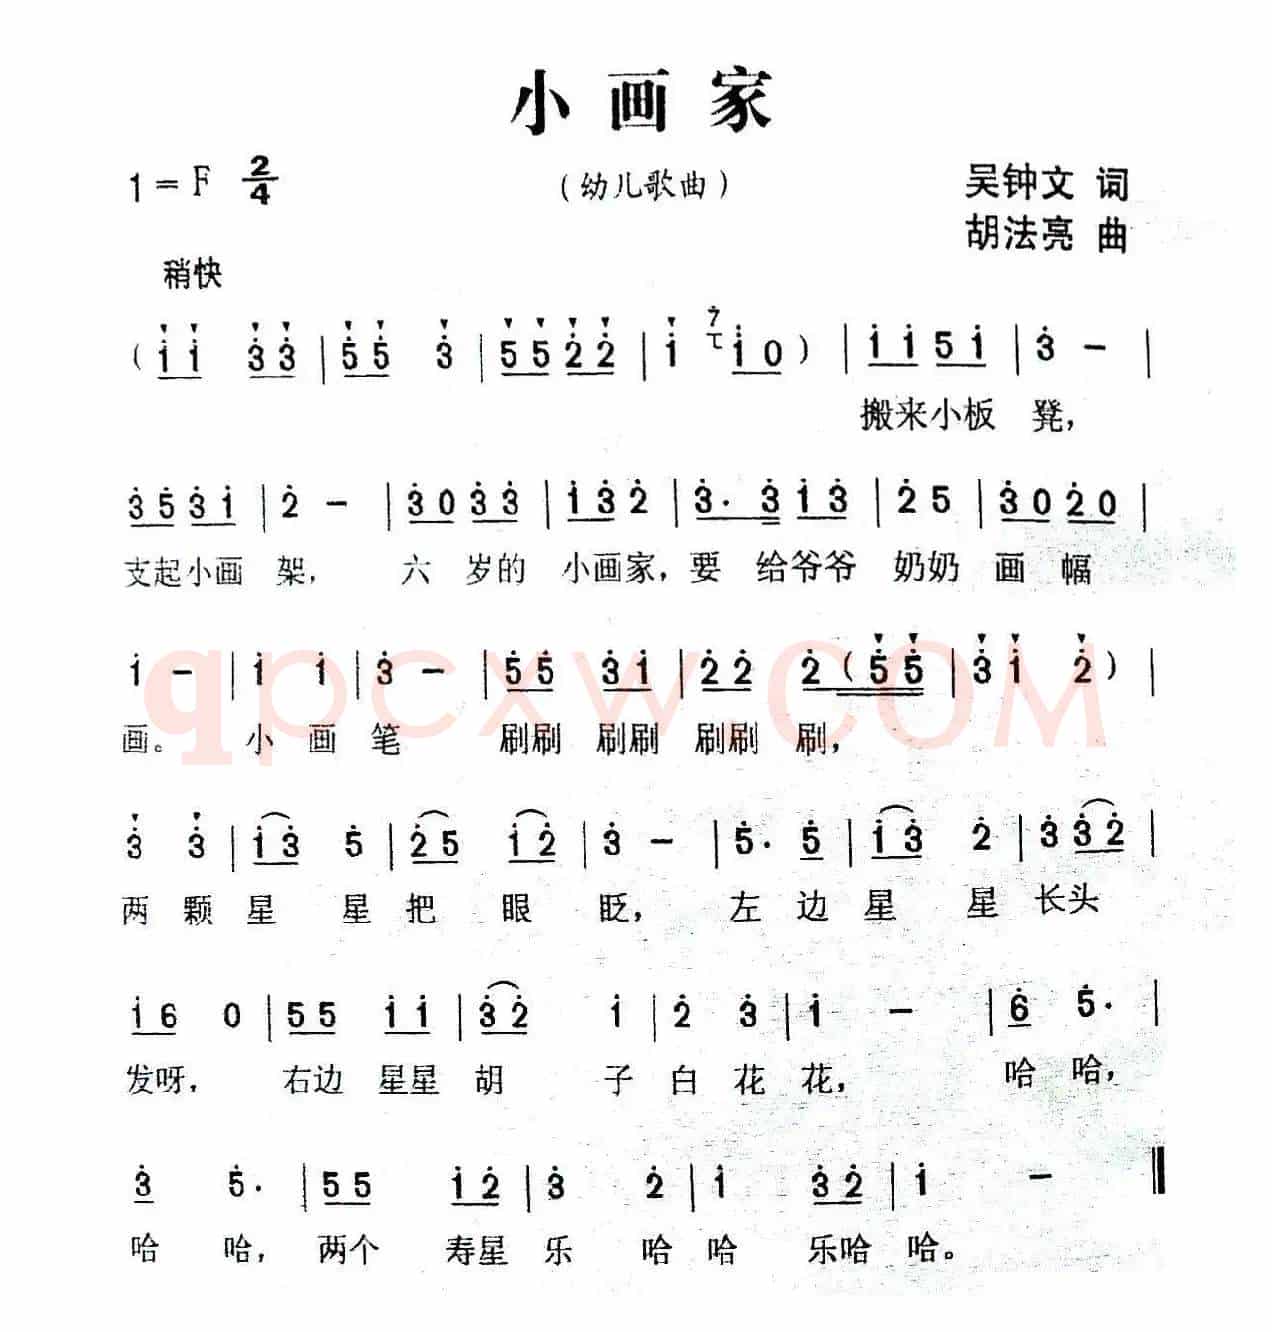 小画家
1=F 2/4
(幼儿歌曲)
吴钟文 词
胡法亮 曲
稍快
( i i 3̇ 3̇ | 5̇ 5̇ 3̇ | 5̇ 5̇ 2̇ 2̇ | i i 0 ) | i i 5 i | 3̇ - |
搬来小板 凳,
3̇ 5̇ 3̇ i | 2̇ - | 3̇ 0 3̇ 3̇ | i 3̇ 2̇ | 3̇. 3̇ i 3̇ | 2̇ 5 | 3̇ 0 2̇ 0 |
支起小画 架, 六 岁的 小画家,要 给爷爷 奶奶 画 幅
i - | i i | 3̇ - | 5̇ 5̇ 3̇ i | 2̇ 2̇ 2̇ ( 5̇ 5̇ | 3̇ i 2̇ ) |
画。 小 画 笔 刷刷 刷刷 刷刷 刷,
3̇ 3̇ | i 3̇ 5̇ | 2̇ 5 i 2̇ | 3̇ - | 5̇. 5̇ | i 3̇ 2̇ | 3̇ 3̇ 2̇ |
两 颗 星 星 把 眼 眨, 左 边 星 星 长头
i 6 0 | 5 5 i i | 3̇ 2̇ i | 2̇ 3̇ | i - | 6̇ 5̇. |
发呀, 右边 星星 胡 子 白 花 花, 哈 哈,
3̇ 5̇. | 5 5 i 2̇ | 3̇ 2̇ | i 3̇ 2̇ | i - ‖
哈 哈, 两个 寿星 乐 哈 哈 乐哈 哈。
qpcxw.COM